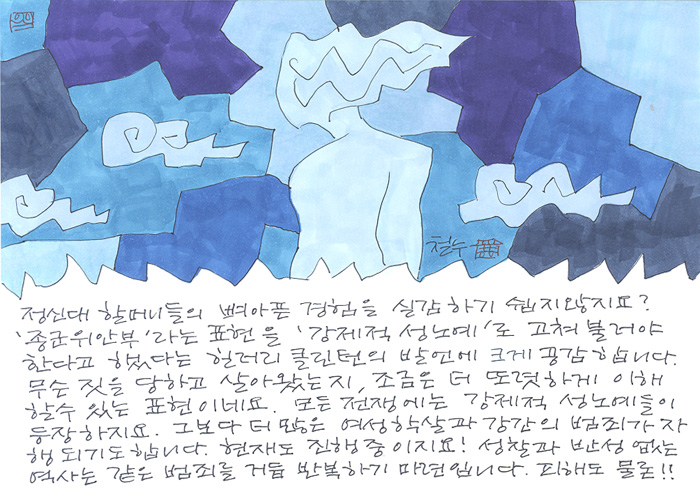 철수
정신대 할머니들의 뼈아픈 경험을 실감하기 쉽지않지요?
'종군위안부'라는 표현을 '강제적 성노예'로 고쳐 불러야
한다고 했다는 힐러리 클린턴의 발언에 크게 공감합니다.
무슨 짓을 당하고 살아왔는지, 조금은 더 또렷하게 이해
할수 있는 표현이네요. 모든 전쟁에는 강제적 성노예들이
등장하지요. 그보다 더 많은 여성학살과 강간의 범죄가 자
행되기도 합니다. 현재도 진행중이지요! 성찰과 반성 없는
역사는 같은 범죄를 거듭 반복하기 마련입니다. 피해도 물론!!